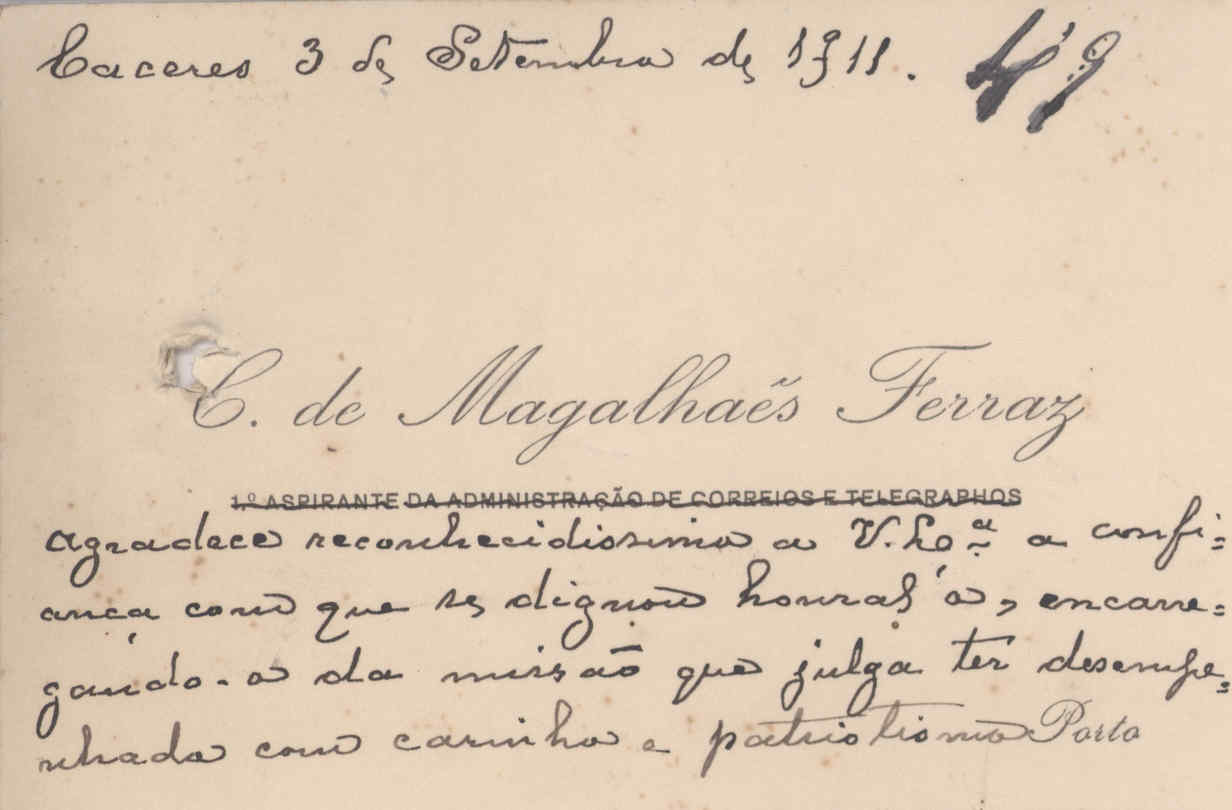 Caceres 3 de Setembro de 1911. 49
C. de Magalhaẽs Ferraz
1.º ASPIRANTE DA ADMINISTRAÇÃO DE CORREIOS E TELEGRAPHOS
agradece reconhecidissimo a V. Ex.ª a confi=
ança com que se dignou honral'o, encarre=
gando-o da missão que julga ter desempe=
nhado com carinho e patriotismo Porto